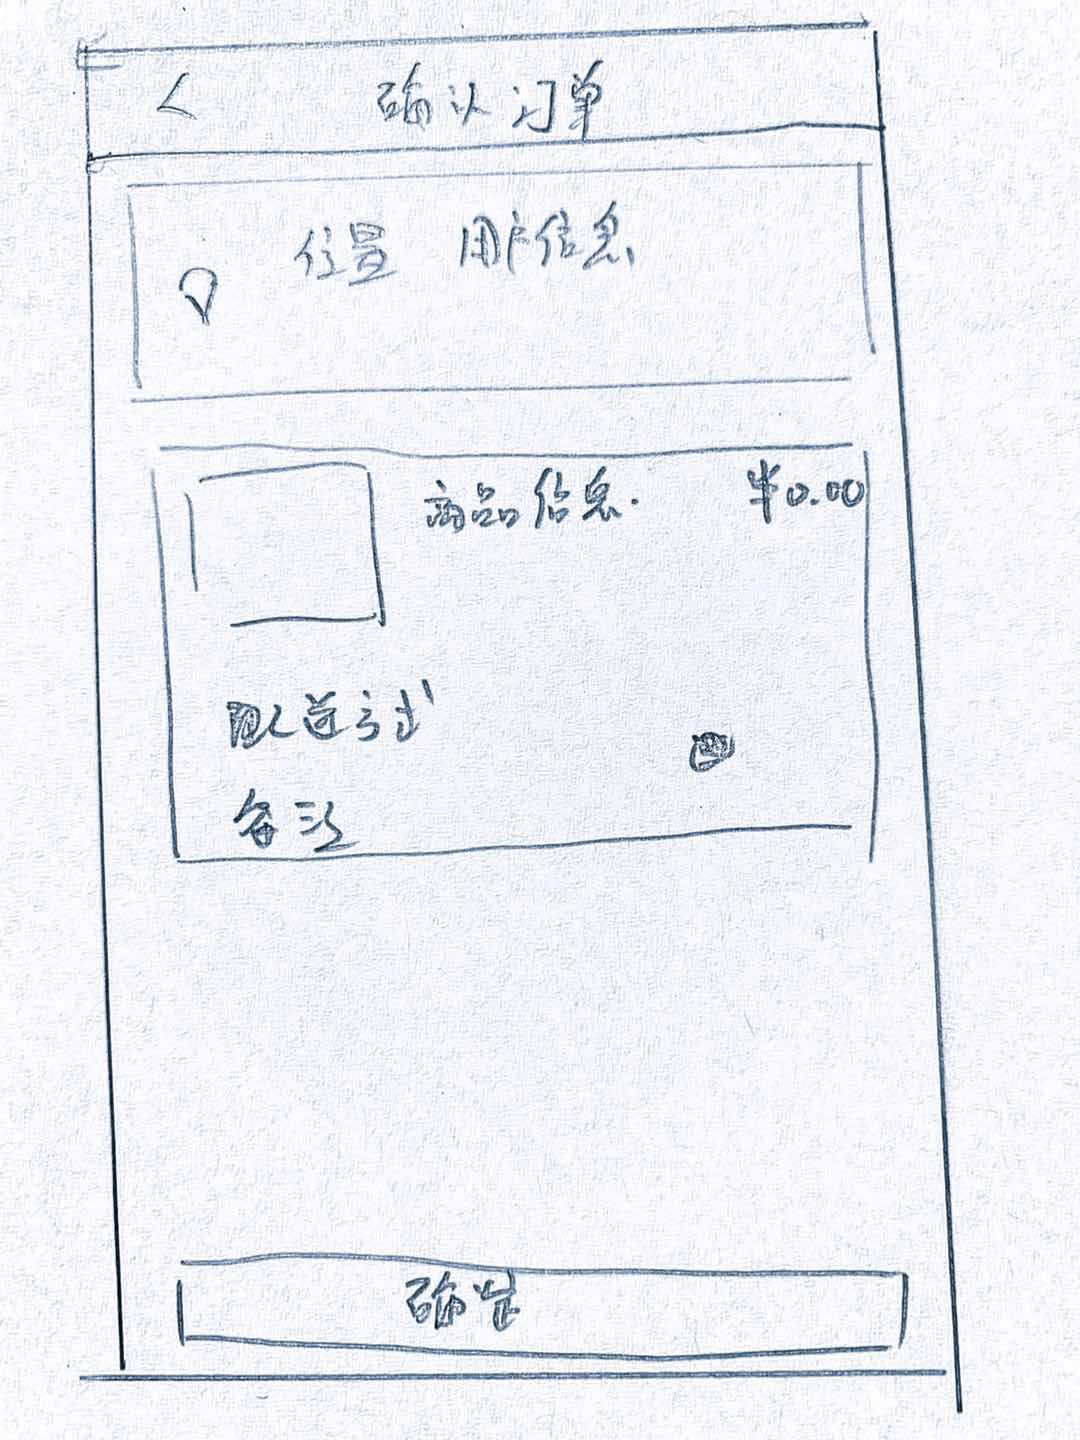 确认订单
位置 用户信息
商品信息 ¥0.00
配送方式
备注
确定